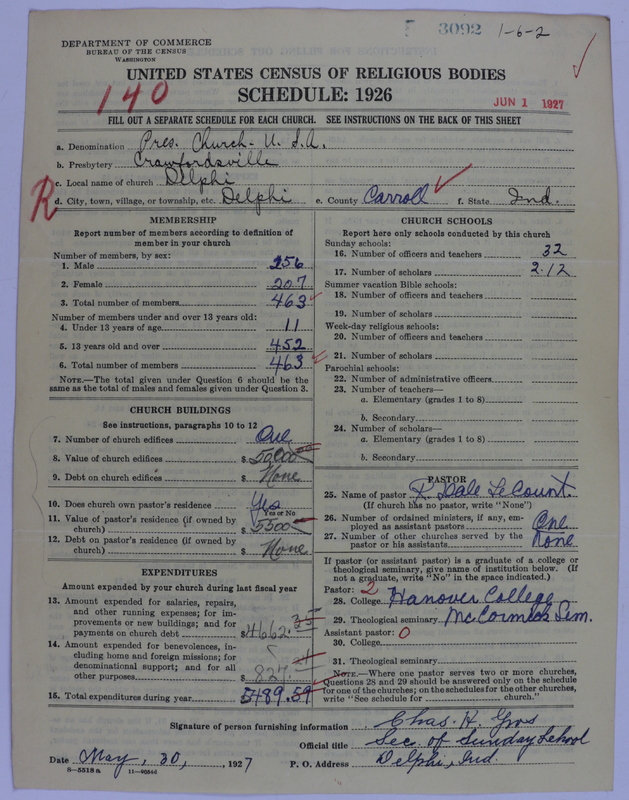 3092 1-6-2
DEPARTMENT OF COMMERCE
BUREAU OF THE CENSUS
WASHINGTON
UNITED STATES CENSUS OF RELIGIOUS BODIES
SCHEDULE: 1926
140
JUN 1 1927
FILL OUT A SEPARATE SCHEDULE FOR EACH CHURCH. SEE INSTRUCTIONS ON THE BACK OF THIS SHEET
a. Denomination Pres. Church - U.S.A.
b. Presbytery Crawfordsville
c. Local name of church Delphi
R
d. City, town, village, or township, etc. Delphi e. County Carroll f. State Ind.
MEMBERSHIP
Report number of members according to definition of
member in your church
Number of members, by sex:
1. Male 256
2. Female 207
3. Total number of members 463
Number of members under and over 13 years old:
4. Under 13 years of age 11
5. 13 years old and over 452
6. Total number of members 463
NOTE.—The total given under Question 6 should be the
same as the total of males and females given under Question 3.
CHURCH BUILDINGS
See instructions, paragraphs 10 to 12
7. Number of church edifices One
8. Value of church edifices $ 50,000
9. Debt on church edifices $ None
10. Does church own pastor's residence Yes
Yes or No
11. Value of pastor's residence (if owned by
church) $ 5500
12. Debt on pastor's residence (if owned by
church) $ None
EXPENDITURES
Amount expended by your church during last fiscal year
13. Amount expended for salaries, repairs,
and other running expenses; for im-
provements or new buildings; and for
payments on church debt $ 4662.35
14. Amount expended for benevolences, in-
cluding home and foreign missions; for
denominational support; and for all
other purposes $ 827.
15. Total expenditures during year 5489.59
CHURCH SCHOOLS
Report here only schools conducted by this church
Sunday schools:
16. Number of officers and teachers 32
17. Number of scholars 212
Summer vacation Bible schools:
18. Number of officers and teachers
19. Number of scholars
Week-day religious schools:
20. Number of officers and teachers
21. Number of scholars
Parochial schools:
22. Number of administrative officers
23. Number of teachers—
a. Elementary (grades 1 to 8)
b. Secondary
24. Number of scholars—
a. Elementary (grades 1 to 8)
b. Secondary
PASTOR
25. Name of pastor R. Dale LeCount.
(If church has no pastor, write "None")
26. Number of ordained ministers, if any, em-
ployed as assistant pastors One
27. Number of other churches served by the
pastor or his assistants None
If pastor (or assistant pastor) is a graduate of a college or
theological seminary, give name of institution below. (If
not a graduate, write "No" in the space indicated.)
Pastor: 2
28. College Hanover College
29. Theological seminary McCormick Sem.
Assistant pastor: 0
30. College
31. Theological seminary
NOTE.—Where one pastor serves two or more churches,
Questions 28 and 29 should be answered only on the schedule
for one of the churches; on the schedules for the other churches,
write "See schedule for church."
Signature of person furnishing information Chas. H.
Official title Sec. of Sunday School
Date May, 30, 1927 P. O. Address Delphi, Ind.
8—5518a